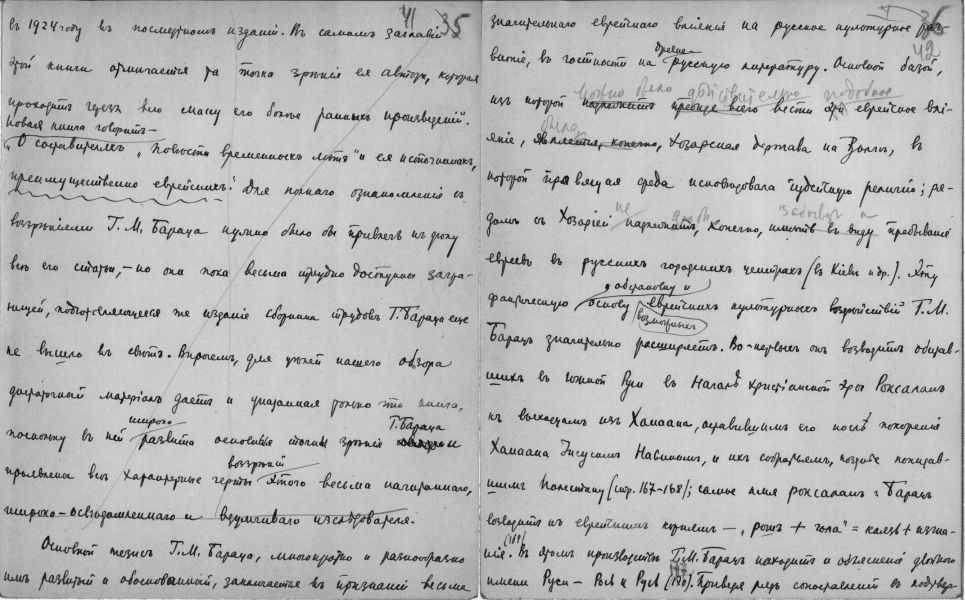 41 35
въ 1924 году въ посмертномъ изданіи. Въ самомъ заглавіи
этой книги отмѣчается та точка зрѣнія ея автора, которая
проходитъ черезъ всю массу его болѣе раннихъ произведеній.
Новая книга говоритъ —
„О составителяхъ „Повѣсти временныхъ лѣтъ" и ея источникахъ,
преимущественно еврейскихъ". Для полнаго ознакомленія съ
воззрѣніями Г. М. Бараца нужно было бы привлечь къ дѣлу
всѣ его статьи, — но они пока весьма трудно доступны загра-
ницей, подготовляющееся же изданіе сборника трудовъ Г. Бараца еще
не вышло въ свѣтъ. Впрочемъ, для цѣлей нашего обзора
достаточный матеріалъ даетъ и указанная только что книга,
поскольку въ ней широко развиты основныя точки зрѣнія Г. Бараца и
проявлены всѣ характерные черты воззрѣній этого весьма начитаннаго,
широко-освѣдомленнаго и вдумчиваго изслѣдователя.
Основной тезисъ Г. М. Бараца, многократно и разнообразно
имъ развитый и обоснованный, заключается въ признаніи весьма
36 42
значительнаго еврейскаго вліянія на русское культурное раз-
витіе, въ частности на древне-русскую литературу. Основной базой,
изъ которой можно было дѣйствительно подобное
надлежитъ прежде всего вести это еврейское влі-
яніе, была является, конечно, Хозарская держава на Волгѣ, въ
которой правящая среда исповѣдовала іудейскую религію; ря-
домъ съ Хозаріей не надлежитъ, конечно, забывать и имѣть въ виду пребываніе
евреевъ въ русскихъ городскихъ центрахъ (въ Кіевѣ и др.). Эту
фактическую обстановку и основу возможныхъ еврейскихъ культурныхъ воздѣйствій Г. М.
Барацъ значительно расширяетъ. Во-первыхъ онъ возводитъ обитав-
шихъ въ южной Руси въ началѣ христіанской эры Роксаланъ
къ выходцамъ изъ Ханаана, оставившимъ его послѣ покоренія
Ханаана Іисусомъ Навиномъ, и ихъ собратьямъ, позднѣе покидав-
шимъ Палестину (стр. 167-168); самое имя роксаланъ г. Барацъ
возводитъ къ еврейскимъ корнямъ — „рошъ + гола" = князь + изгна-
ніе. (169) Въ этомъ производствѣ Г. М. Барацъ находитъ и объясненіе двоякаго
имени Руси — Рось и Русь (170). Приведя рядъ сопоставленій въ подтвер-